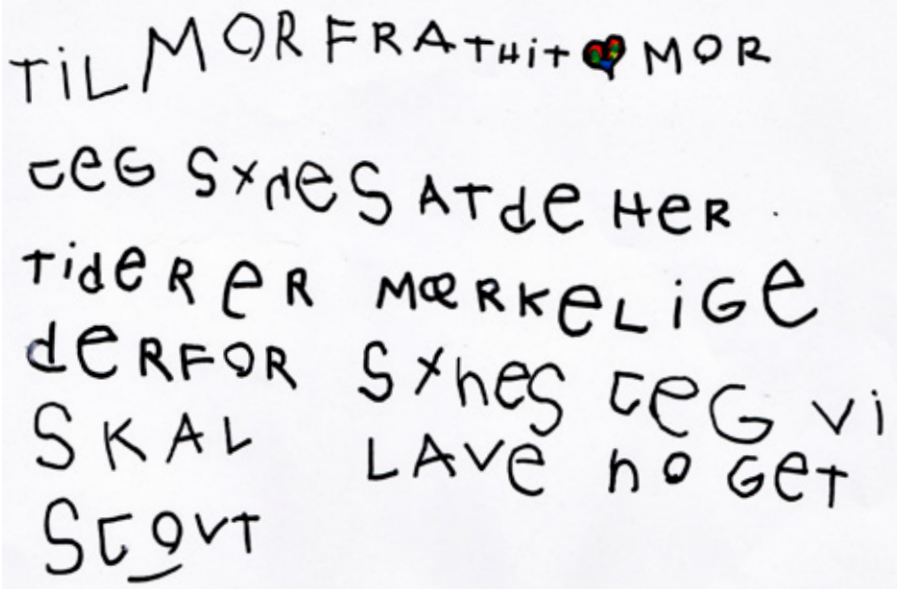 TiL MOR FRA THiT MOR
JeG SYNeS AT de HeR
TideR eR MæRKeLiGe
deRFOR SYNeS JeG Vi
SKAL LAVe NOGeT
SJOVT